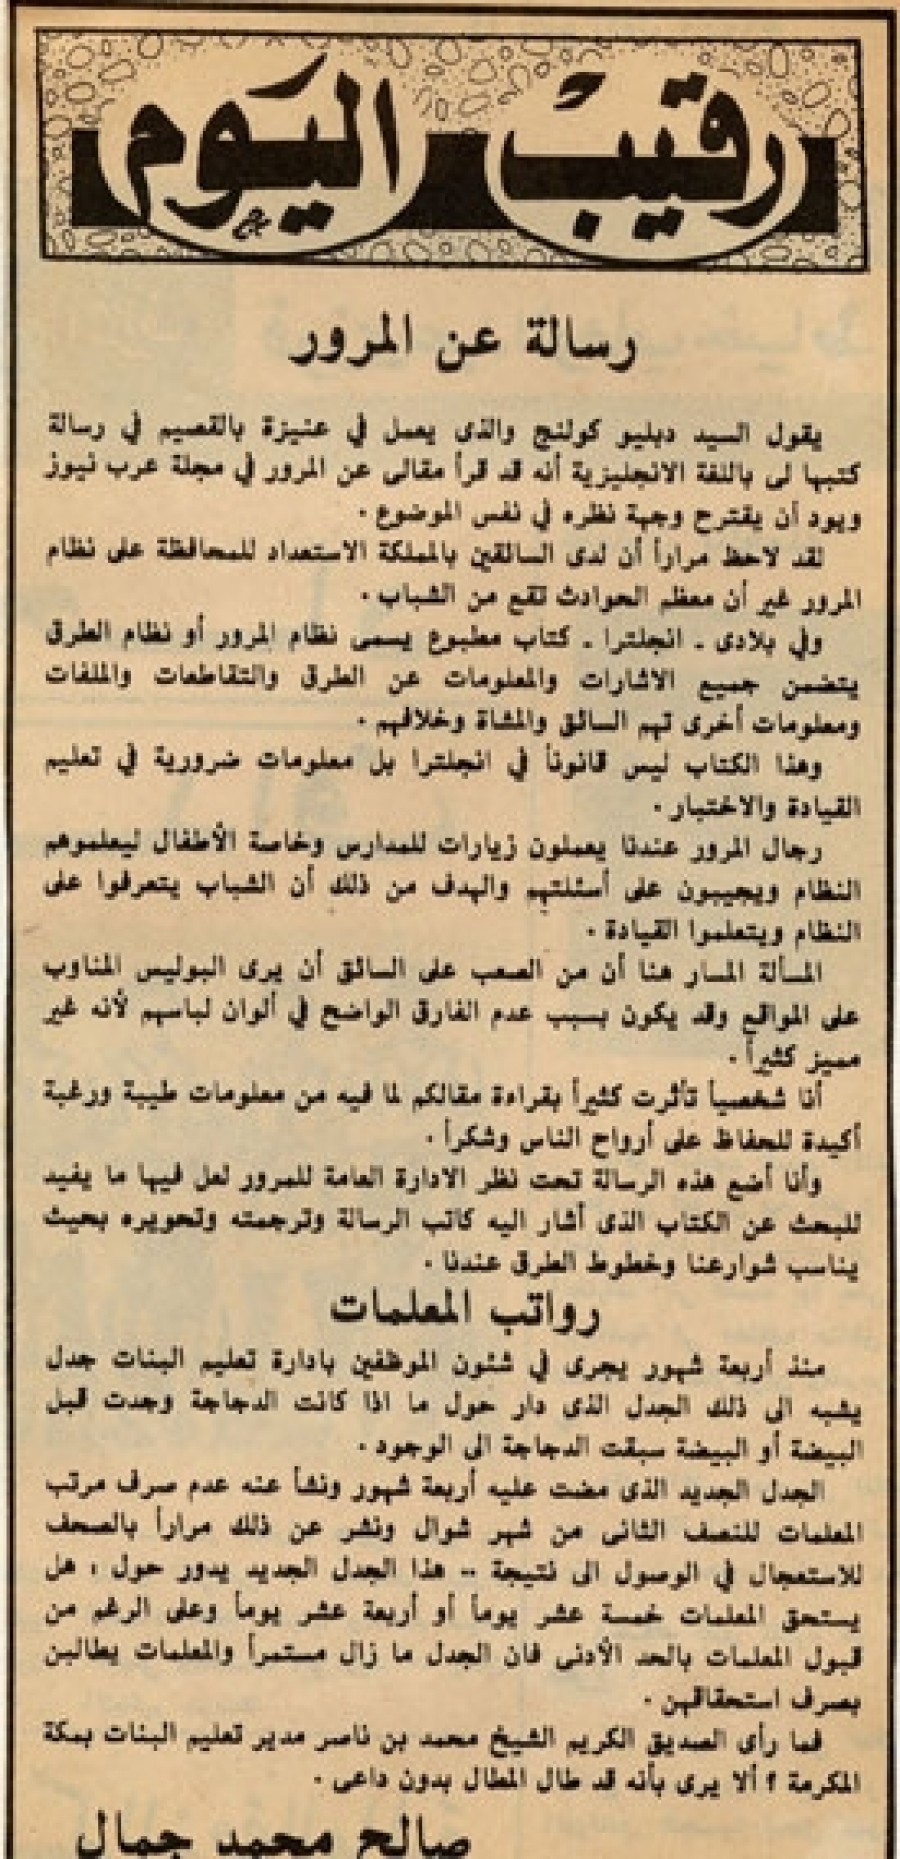 رقيب اليوم
رسالة عن المرور
يقول السيد دبليو كولنج والذى يعمل في عنيزة بالقصيم في رسالة
كتبها لى باللغة الانجليزية أنه قد قرأ مقالى عن المرور في مجلة عرب نيوز
ويود أن يقترح وجهة نظره في نفس الموضوع .
لقد لاحظ مراراً أن لدى السائقين بالمملكة الاستعداد للمحافظة على نظام
المرور غير أن معظم الحوادث تقع من الشباب .
وفي بلادى ـ انجلترا ـ كتاب مطبوع يسمى نظام المرور أو نظام الطرق
يتضمن جميع الاشارات والمعلومات عن الطرق والتقاطعات والملفات
ومعلومات أخرى تهم السائق والمشاة وخلافهم .
وهذا الكتاب ليس قانوناً في انجلترا بل معلومات ضرورية في تعليم
القيادة والاختبار .
رجال المرور عندنا يعملون زيارات للمدارس وخاصة الأطفال ليعلموهم
النظام ويجيبون على أسئلتهم والهدف من ذلك أن الشباب يتعرفوا على
النظام ويتعلموا القيادة .
المسألة المسار هنا أن من الصعب على السائق أن يرى البوليس المناوب
على المواقع وقد يكون بسبب عدم الفارق الواضح في ألوان لباسهم لأنه غير
مميز كثيراً .
أنا شخصياً تأثرت كثيراً بقراءة مقالكم لما فيه من معلومات طيبة ورغبة
أكيدة للحفاظ على أرواح الناس وشكراً .
وأنا أضع هذه الرسالة تحت نظر الادارة العامة للمرور لعل فيها ما يفيد
للبحث عن الكتاب الذى أشار اليه كاتب الرسالة وترجمته وتحويره بحيث
يناسب شوارعنا وخطوط الطرق عندنا .
رواتب المعلمات
منذ أربعة شهور يجرى في شئون الموظفين بادارة تعليم البنات جدل
يشبه الى ذلك الجدل الذى دار حول ما اذا كانت الدجاجة وجدت قبل
البيضة أو البيضة سبقت الدجاجة الى الوجود .
الجدل الجديد الذى مضت عليه أربعة شهور ونشأ عنه عدم صرف مرتب
المعلمات للنصف الثانى من شهر شوال ونشر عن ذلك مراراً بالصحف
للاستعجال في الوصول الى نتيجة .. هذا الجدل الجديد يدور حول ، هل
يستحق المعلمات خمسة عشر يوماً أو أربعة عشر يوماً وعلى الرغم من
قبول المعلمات بالحد الأدنى فان الجدل ما زال مستمراً والمعلمات يطالبن
بصرف استحقاقهن .
فما رأى الصديق الكريم الشيخ محمد بن ناصر مدير تعليم البنات بمكة
المكرمة ؟ ألا يرى بأنه قد طال المطال بدون داعى .
صالح محمد جمال